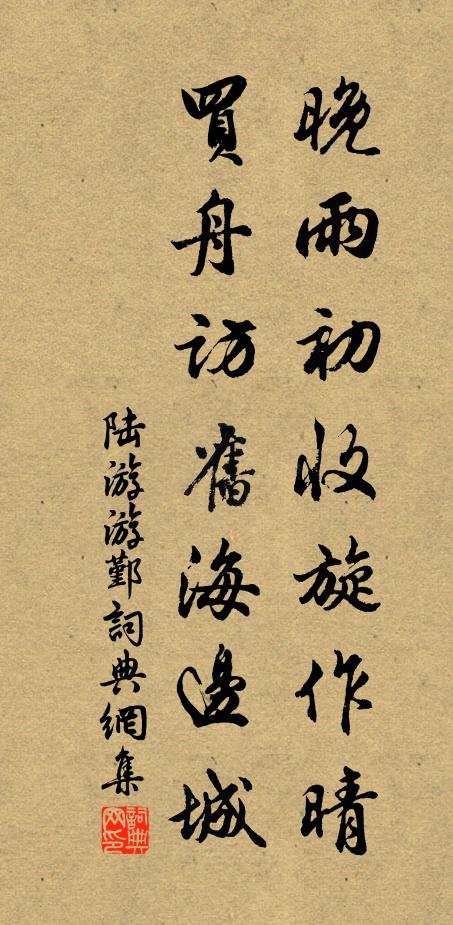 晚雨初收旋作晴
買舟訪舊海邊城
陆游游鄞詞典網集
詞典网印